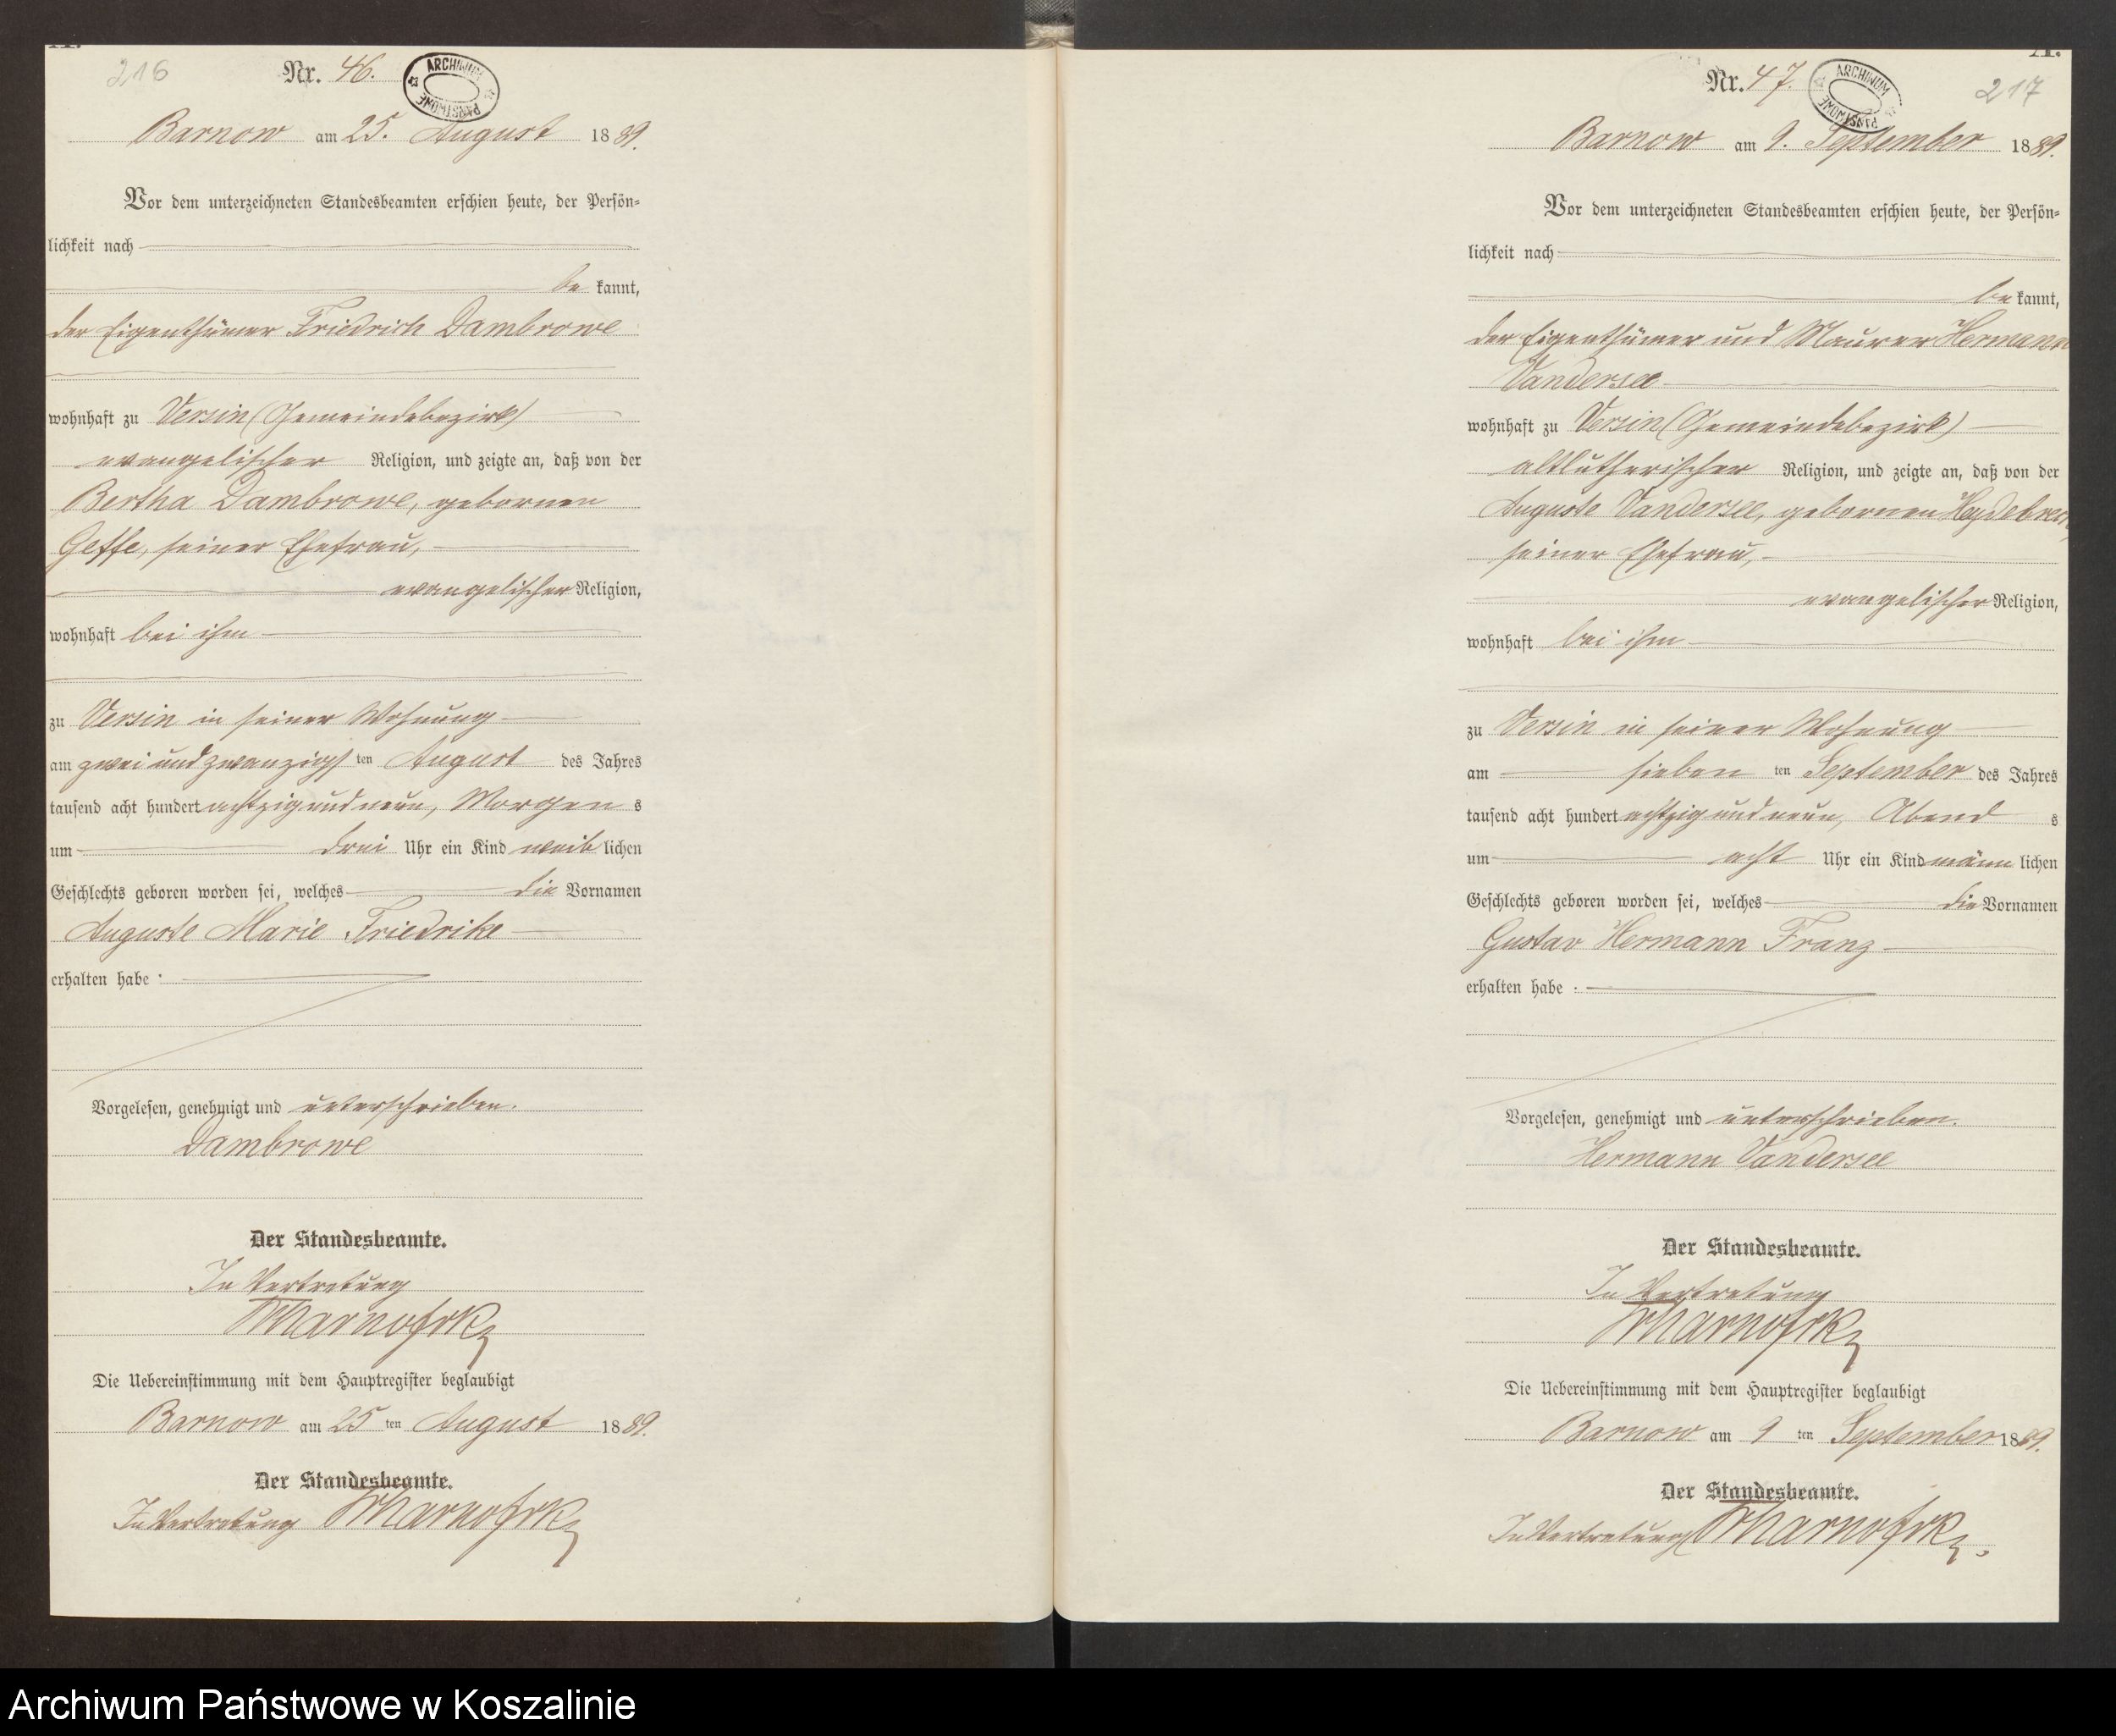 216
Nr. 46.
ARCHIWUM PAŃSTWOWE
Barnow am 25. August 1889.
Vor dem unterzeichneten Standesbeamten erschien heute, der Persön-
lichkeit nach
be kannt,
der Eigenthümer Friedrich Dambrowe
wohnhaft zu Versin (Gemeindebezirk)
evangelischer Religion, und zeigte an, daß von der
Bertha Dambrowe, gebornen
Geffe, seiner Ehefrau,
evangelischer Religion,
wohnhaft bei ihm
zu Versin in seiner Wohnung
am zwei und zwanzigs ten August des Jahres
tausend acht hundert achtzig und neun, Morgen s
um drei Uhr ein Kind weib lichen
Geschlechts geboren worden sei, welches die Vornamen
Auguste Marie Friedrike
erhalten habe.
Vorgelesen, genehmigt und unterschrieben.
Dambrowe
Der Standesbeamte.
In Vertretung
Die Uebereinstimmung mit dem Hauptregister beglaubigt
Barnow am 25 ten August 1889.
Der Standesbeamte.
In Vertretung
A.
217
Nr. 47.
ARCHIWUM PAŃSTWOWE
Barnow am 9. September 1889.
Vor dem unterzeichneten Standesbeamten erschien heute, der Persön-
lichkeit nach
be kannt,
der Eigenthümer und Maurer Hermann
Vandersee
wohnhaft zu Versin (Gemeindebezirk)
altlutherischer Religion, und zeigte an, daß von der
Auguste Vandersee, gebornen
seiner Ehefrau,
evangelischer Religion,
wohnhaft bei ihm
zu Versin in seiner Wohnung
am sieben ten September des Jahres
tausend acht hundert achtzig und neun, Abend s
um acht Uhr ein Kind männ lichen
Geschlechts geboren worden sei, welches die Vornamen
Gustav Hermann Franz
erhalten habe.
Vorgelesen, genehmigt und unterschrieben.
Hermann Vandersee
Der Standesbeamte.
In Vertretung
Die Uebereinstimmung mit dem Hauptregister beglaubigt
Barnow am 9 ten September 1889.
Der Standesbeamte.
In Vertretung
Archiwum Państwowe w Koszalinie